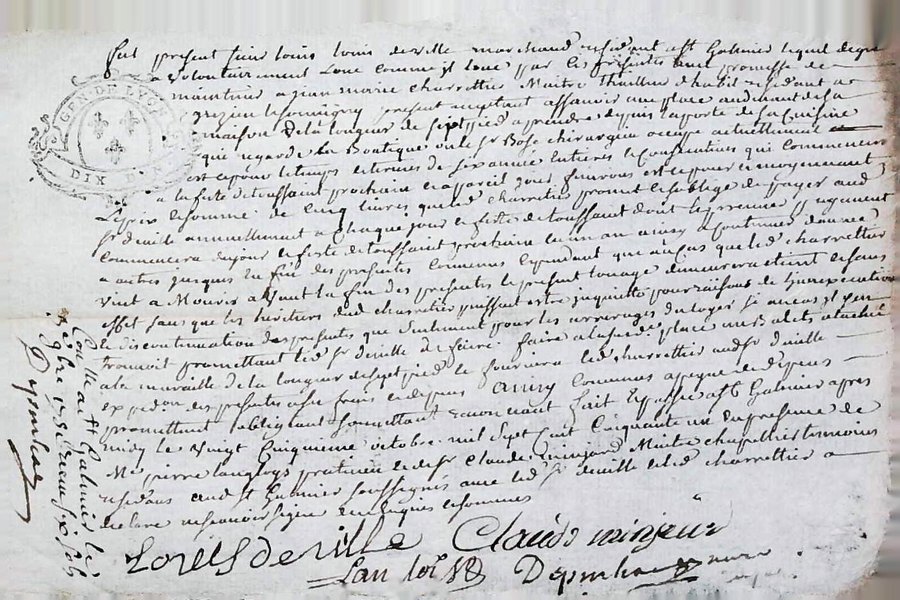 fut présent sieur louis louis deville marchand résidant a St Galmier lequel de gré
a volontairement Loué comme il loue par ces présentes avec promesse de
maintenir a jean marie charrettier Maitre thailleur d'habit résidant au
présent acceptant assavoir une place au devant de sa
maison de la longeur de sept pied a prendre depuis la porte de sa Cuisine
qui regarde la Boutique que le Sr Bose chirurgien occupe actuellement
et ce pour le temps et terme de six année entieres et consecutives qui commencera
a la feste de toussaint prochaine et a pareil jour finiront et ce pour et moyennant
Le prix et somme de Cinq livres que led charrettier promet et s'oblige de payer aud
Sr deville annuellement a chaque jour et feste de toussaint dont le premier payement
commencera du jour et feste de toussaint prochaine en un an ainsy a Continuer d'année
a autres jusques en fin des présentes Convenu cependant que au cas que led charrettier
Vint a Mourir avant la fin des présentes le present louage demeurera éteint et sans
effet sans que les héritiers dud charretier puissent estre inquietté pour raisons de L'inexecution
et discontinuation des présentes que seulement pour les arrerages du loyer si aucuns il s'en
trouvoit promettant led Sr deville de faire faire a la susde place un Balets attaché
a la muraille de la longeur de sept pied et fournira led charrettier aud Sr deville
expedon des présentes a ses frais et depens Ainsy Convenus a peyne de depens
promettant obligeant soumettant renonceant fait et passé a St Galmier apres
midy le Vingt Cinquieme octobre mil Sept Cent Cinquante un En presence de
Me pierre langloys praticien et de Sr Claude minjard Maitre chapellier temoins
résidans aud St Galmier soussignés avec led Sr deville et led charrettier a
declaré ne scavoir signer enquis et sommé
Lovis de ville Claude minjard
Lanlois Depinhac
GEN. DE LYON
DIX D.
Con lle a St Galmier le
Depinhac